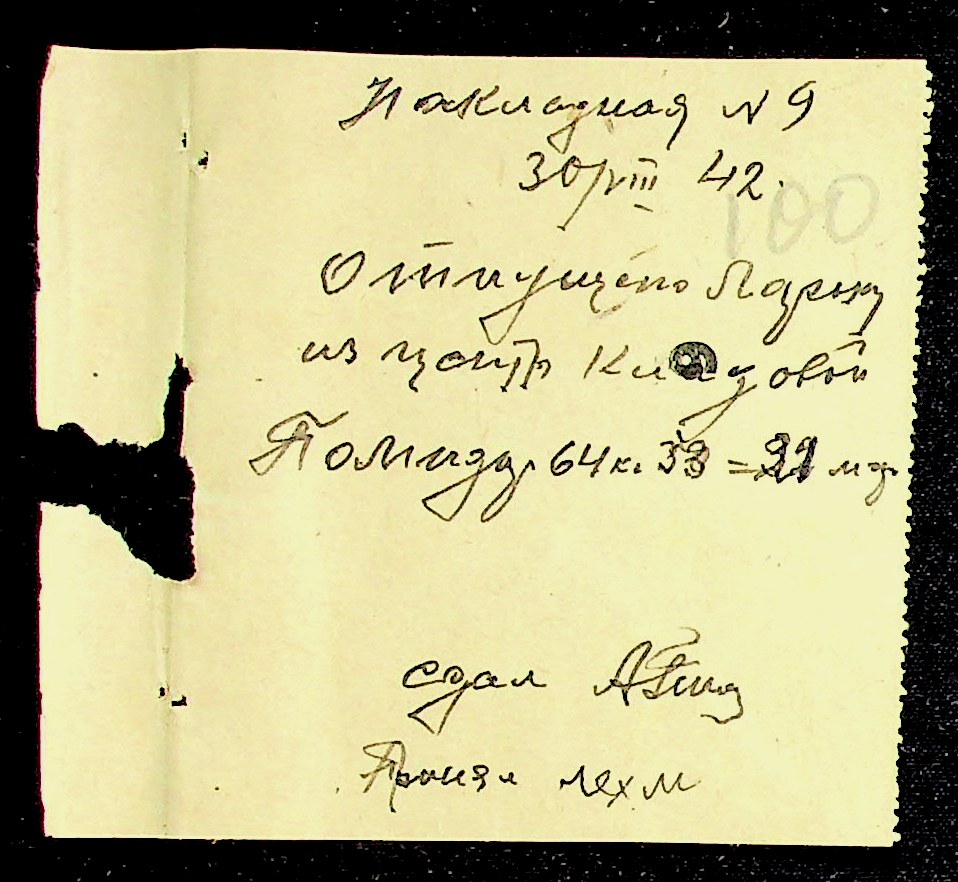 Накладная N 9
30/VIII 42.
100
Отпущено Ларьку
из центр Кладовой
Помидор. 64 к.
сдал
Принял